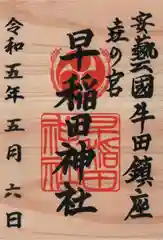 安藝國牛田鎮座
壱の宮
早稲田神社
早稲田
神社
令和五年五月六日